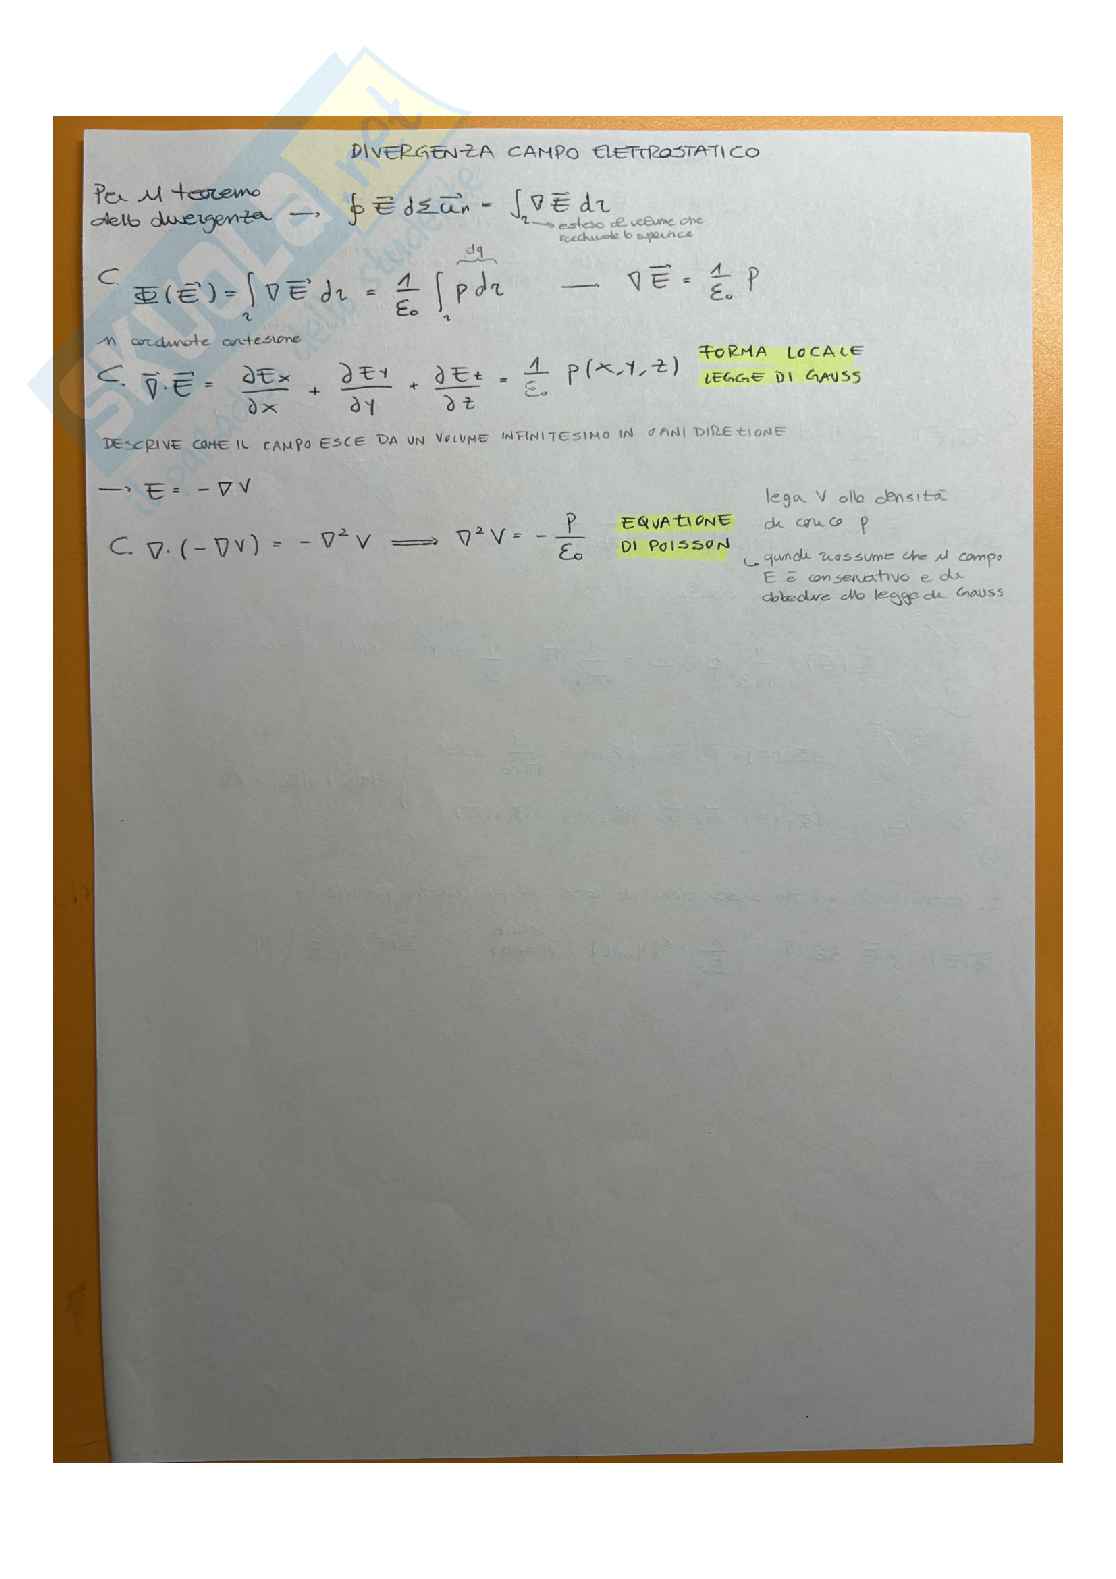 DIVERGENZA CAMPO ELETTROSTATICO
Per il teorema
della divergenza → ∮ E⃗ dΣ u⃗n = ∫τ ∇E⃗ dτ
→ esteso al volume che
racchiude la superficie
dq
Φ(E⃗) = ∫τ ∇E⃗ dτ = 1/ε₀ ∫τ ρ dτ — ∇E⃗ = 1/ε₀ ρ
in coordinate cartesiane
∇⃗·E⃗ = ∂Ex/∂x + ∂Ey/∂y + ∂Ez/∂z = 1/ε₀ ρ(x,y,z) FORMA LOCALE
LEGGE DI GAUSS
DESCRIVE COME IL CAMPO ESCE DA UN VOLUME INFINITESIMO IN OGNI DIREZIONE
→ E = -∇V
∇·(-∇V) = -∇²V ⟹ ∇²V = -ρ/ε₀ EQUAZIONE
DI POISSON
lega V alla densità
di carica ρ
↳ quindi riassume che il campo
E è conservativo e di
obbedire alla legge di Gauss
SKUOLA.net